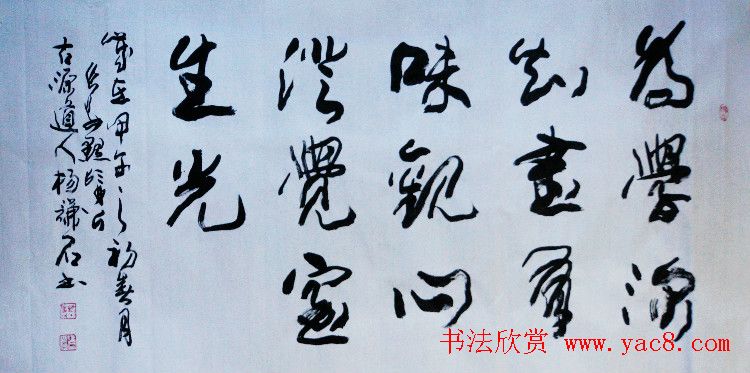 為學深
知書有
味觀心
澄覺室
生光
歲在甲午之初春月
古源道人楊謙
书法欣赏 www.yac8.com